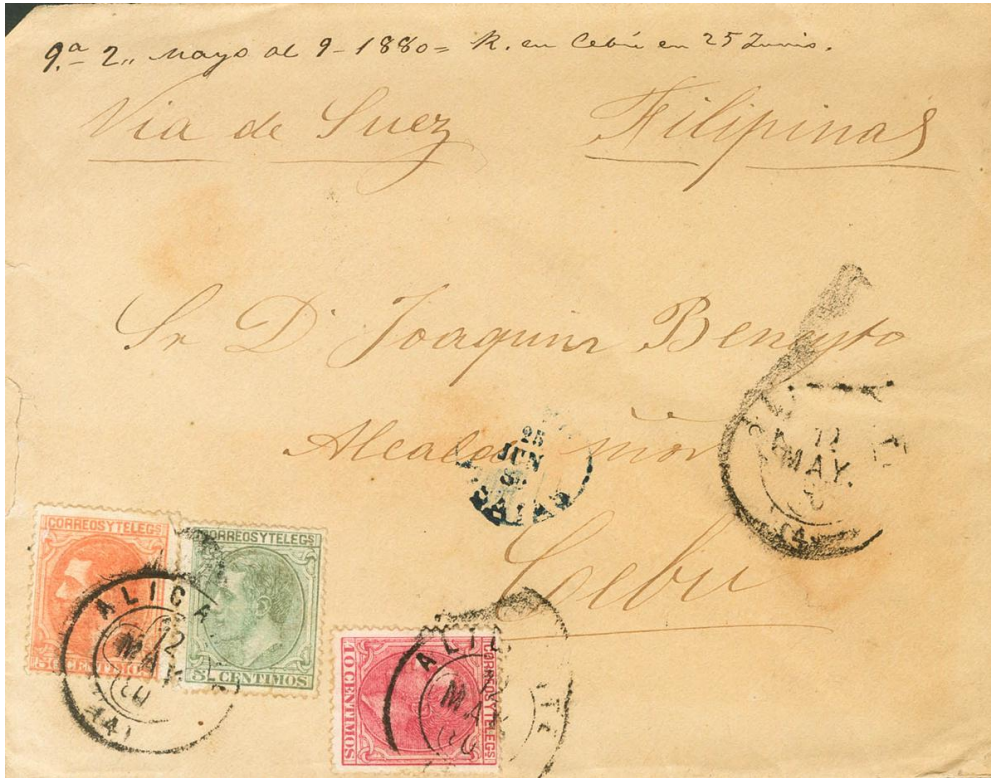 9.ª 2,, Mayo al 9-1880= R. en Cebú en 25 Junio.
Via de Suez Filipinas
Sr D. Joaquin Beneyto
Alcalde mor
Cebu
25
JUN
11
MAY.
(4)
CORREOS Y TELEGS
CENTIMOS
CORREOS Y TELEGS
CENTIMOS
ALICA
12
MAY
80
(4)
CORREOS Y TELEGS
10 CENTIMOS
ALIC
MAY
80